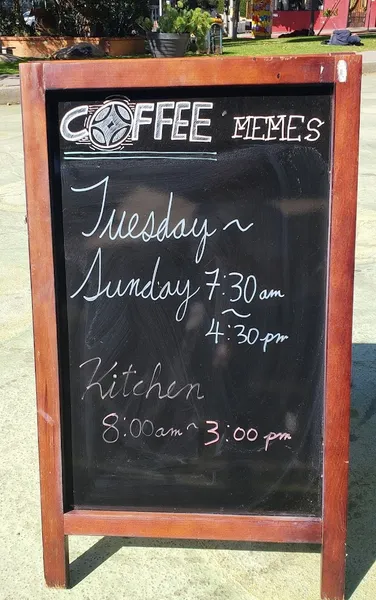 COFFEE MEMES
Tuesday ~
Sunday 7:30 am
~
4:30 pm
Kitchen
8:00 am ~ 3:00 pm